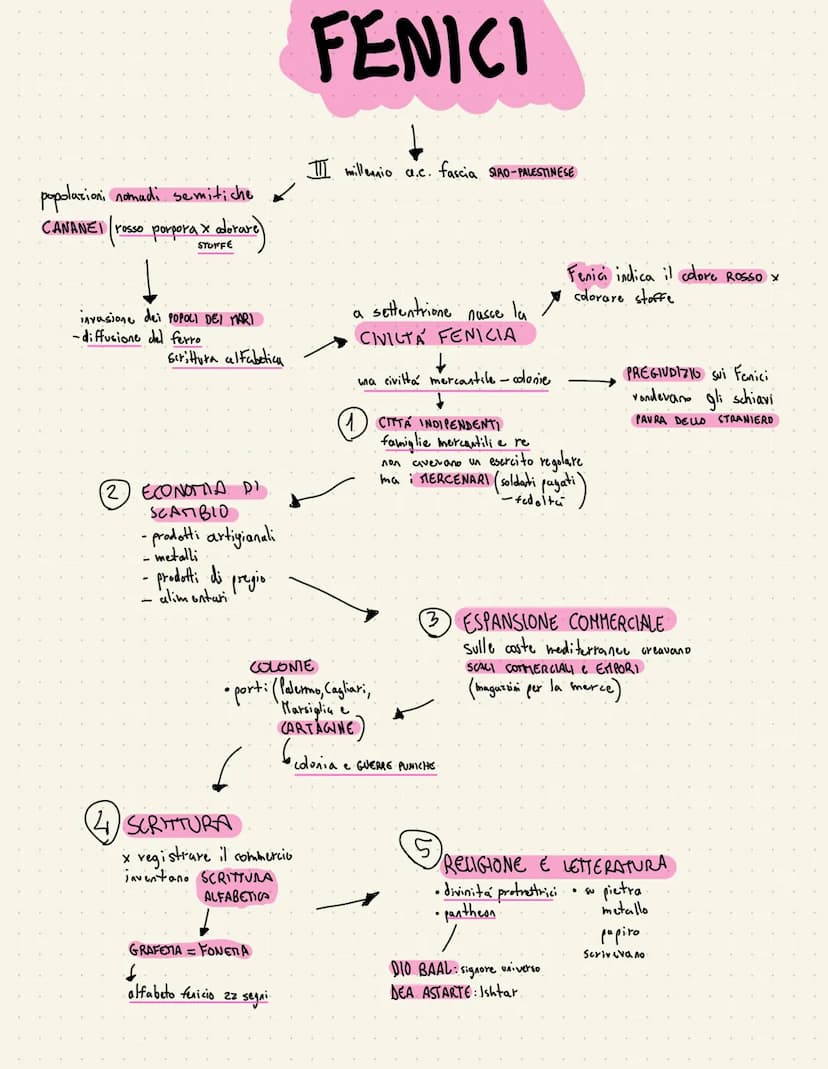 FENICI
III millennio a.c. fascia SIRO-PALESTINESE
popolazioni nomadi semitiche
CANANEI (rosso porpora x colorare
STOFFE)
invasione dei POPOLI DEI MARI
-diffusione del ferro
scrittura alfabetica
a settentrione nasce la
CIVILTÁ FENICIA
Fenici indica il colore ROSSO x
colorare stoffe
una civiltá mercantile - colonie
PREGIUDIZIO sui Fenici
vendevano gli schiavi
PAURA DELLO STRANIERO
1 CITTÁ INDIPENDENTI
famiglie mercantili e re
non avevano un esercito regolare
ma i MERCENARI (soldati pagati)
- fedeltá
2 ECONOMIA DI
SCAMBIO
- prodotti artigianali
- metalli
- prodotti di pregio
- alimentari
3 ESPANSIONE COMMERCIALE
sulle coste mediterranee creavano
SCALI COMMERCIALI E EMPORI
(magazzini per la merce)
COLONIE
• porti (Palermo, Cagliari,
Marsiglia e
CARTAGINE)
colonia e GUERRE PUNICHE
4 SCRITTURA
x registrare il commercio
inventano SCRITTURA
ALFABETICA
GRAFEMA = FONEMA
alfabeto fenicio 22 segni
5 RELIGIONE E LETTERATURA
• divinitá protrettrici
• pantheon
DIO BAAL: signore universo
DEA ASTARTE: Ishtar
• su pietra
metallo
papiro
scrivevano